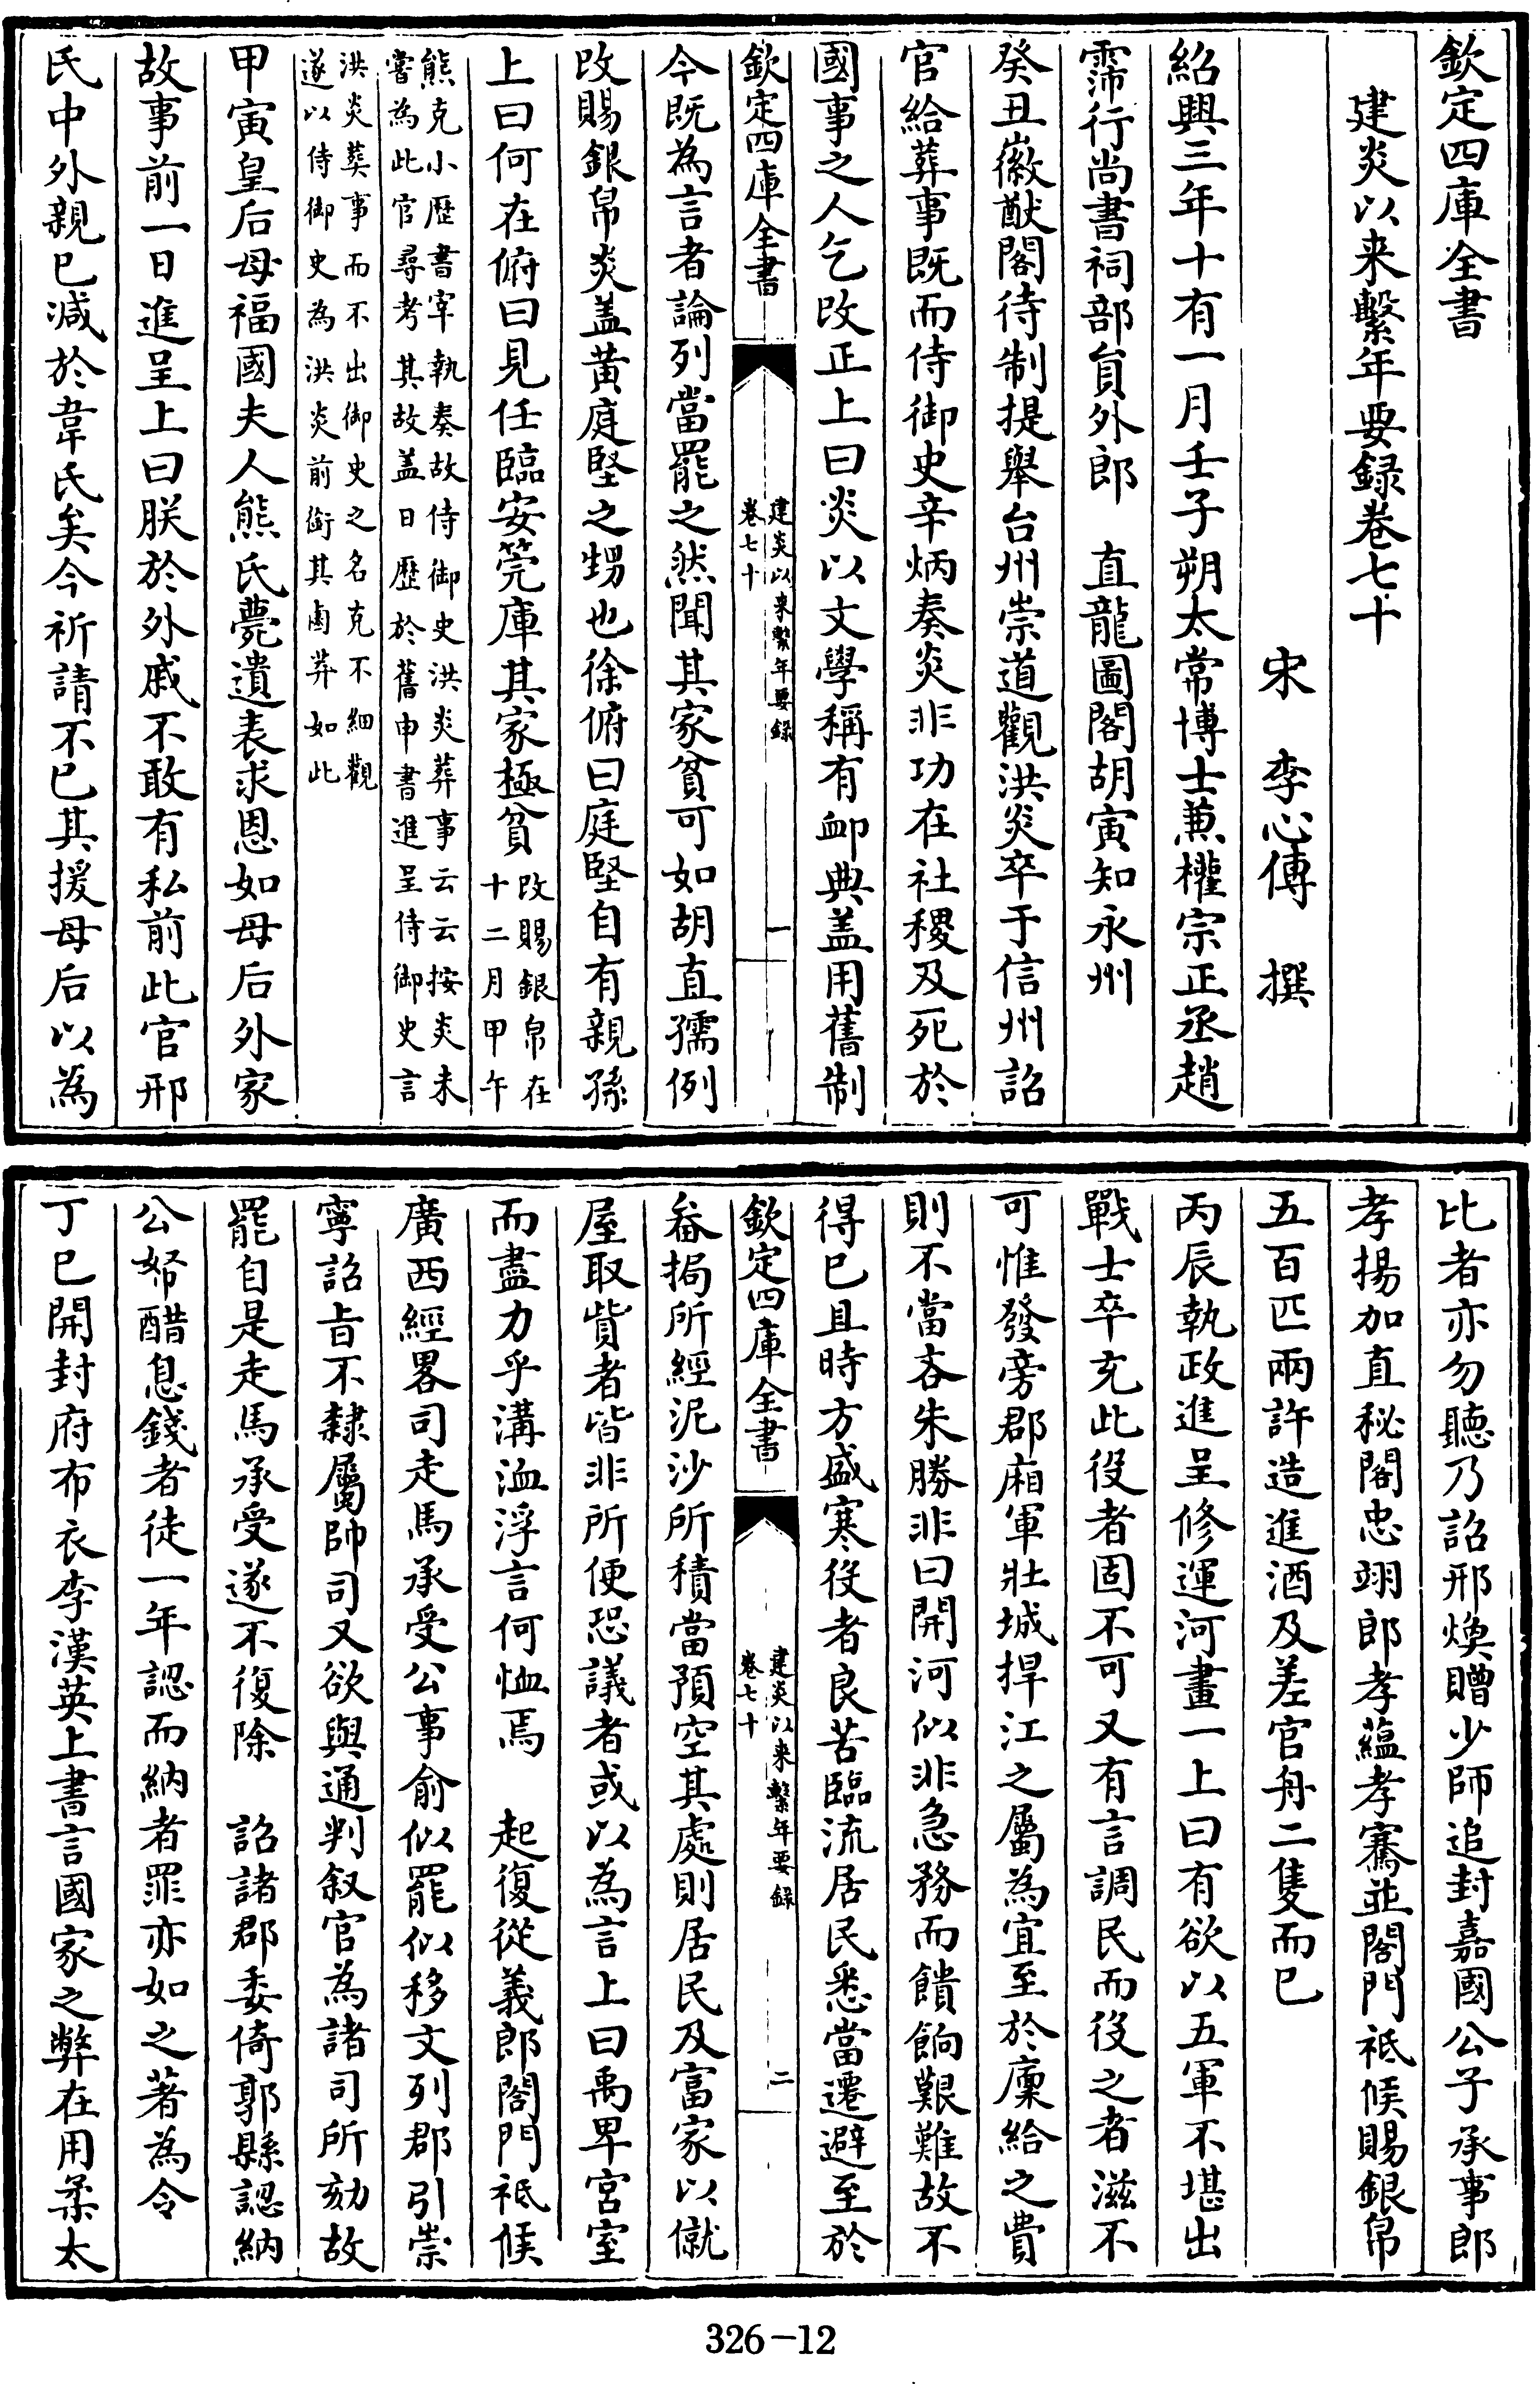 欽定四庫全書
建炎以來繫年要録卷七十
宋 李心傳 撰
紹興三年十有一月壬子朔太常博士兼權宗正丞趙
霈行尚書祠部員外郎 直龍圖閣胡寅知永州
癸丑徽猷閣待制提舉台州崇道觀洪炎卒于信州詔
官給葬事既而侍御史辛炳奏炎非功在社稷及死於
國事之人乞改正上曰炎以文學稱有卹典盖用舊制
欽定四庫全書
建炎以來繫年要録
卷七十
一
今既為言者論列當罷之然聞其家貧可如胡直孺例
改賜銀帛炎盖黄庭堅之甥也徐俯曰庭堅自有親孫
上曰何在俯曰見任臨安筦庫其家極貧
改賜銀帛在
十二月甲午
熊克小歴書宰執奏故侍御史洪炎葬事云云按炎未
嘗為此官尋考其故盖日歴於舊申書進呈侍御史言
洪炎葬事而不出御史之名克不細觀
遂以侍御史為洪炎前銜其鹵莽如此
甲寅皇后母福國夫人熊氏薨遺表求恩如母后外家
故事前一日進呈上曰朕於外戚不敢有私前此官邢
氏中外親已减於韋氏矣今祈請不已其援母后以為
比者亦勿聽乃詔邢煥贈少師追封嘉國公子承事郎
孝揚加直秘閣忠翊郎孝蘊孝騫並閣門祇候賜銀帛
五百匹兩許造進酒及差官舟二隻而已
丙辰執政進呈修運河畫一上曰有欲以五軍不堪出
戰士卒充此役者固不可又有言調民而役之者滋不
可惟發旁郡廂軍壯城捍江之屬為宜至於廩給之費
則不當吝朱勝非曰開河似非急務而饋餉艱難故不
得已且時方盛寒役者良苦臨流居民悉當遷避至於
欽定四庫全書
建炎以來繫年要録
卷七十
二
畚挶所經泥沙所積當預空其處則居民及富家以僦
屋取貲者皆非所便恐議者或以為言上曰禹卑宮室
而盡力乎溝洫浮言何恤焉 起復從義郎閣門祇候
廣西經畧司走馬承受公事俞似罷似移文列郡引崇
寧詔旨不隸屬帥司又欲與通判叙官為諸司所劾故
罷自是走馬承受遂不復除 詔諸郡委倚郭縣認納
公帑醋息錢者徒一年認而納者罪亦如之著為令
丁巳開封府布衣李漢英上書言國家之弊在用柔太
326-12